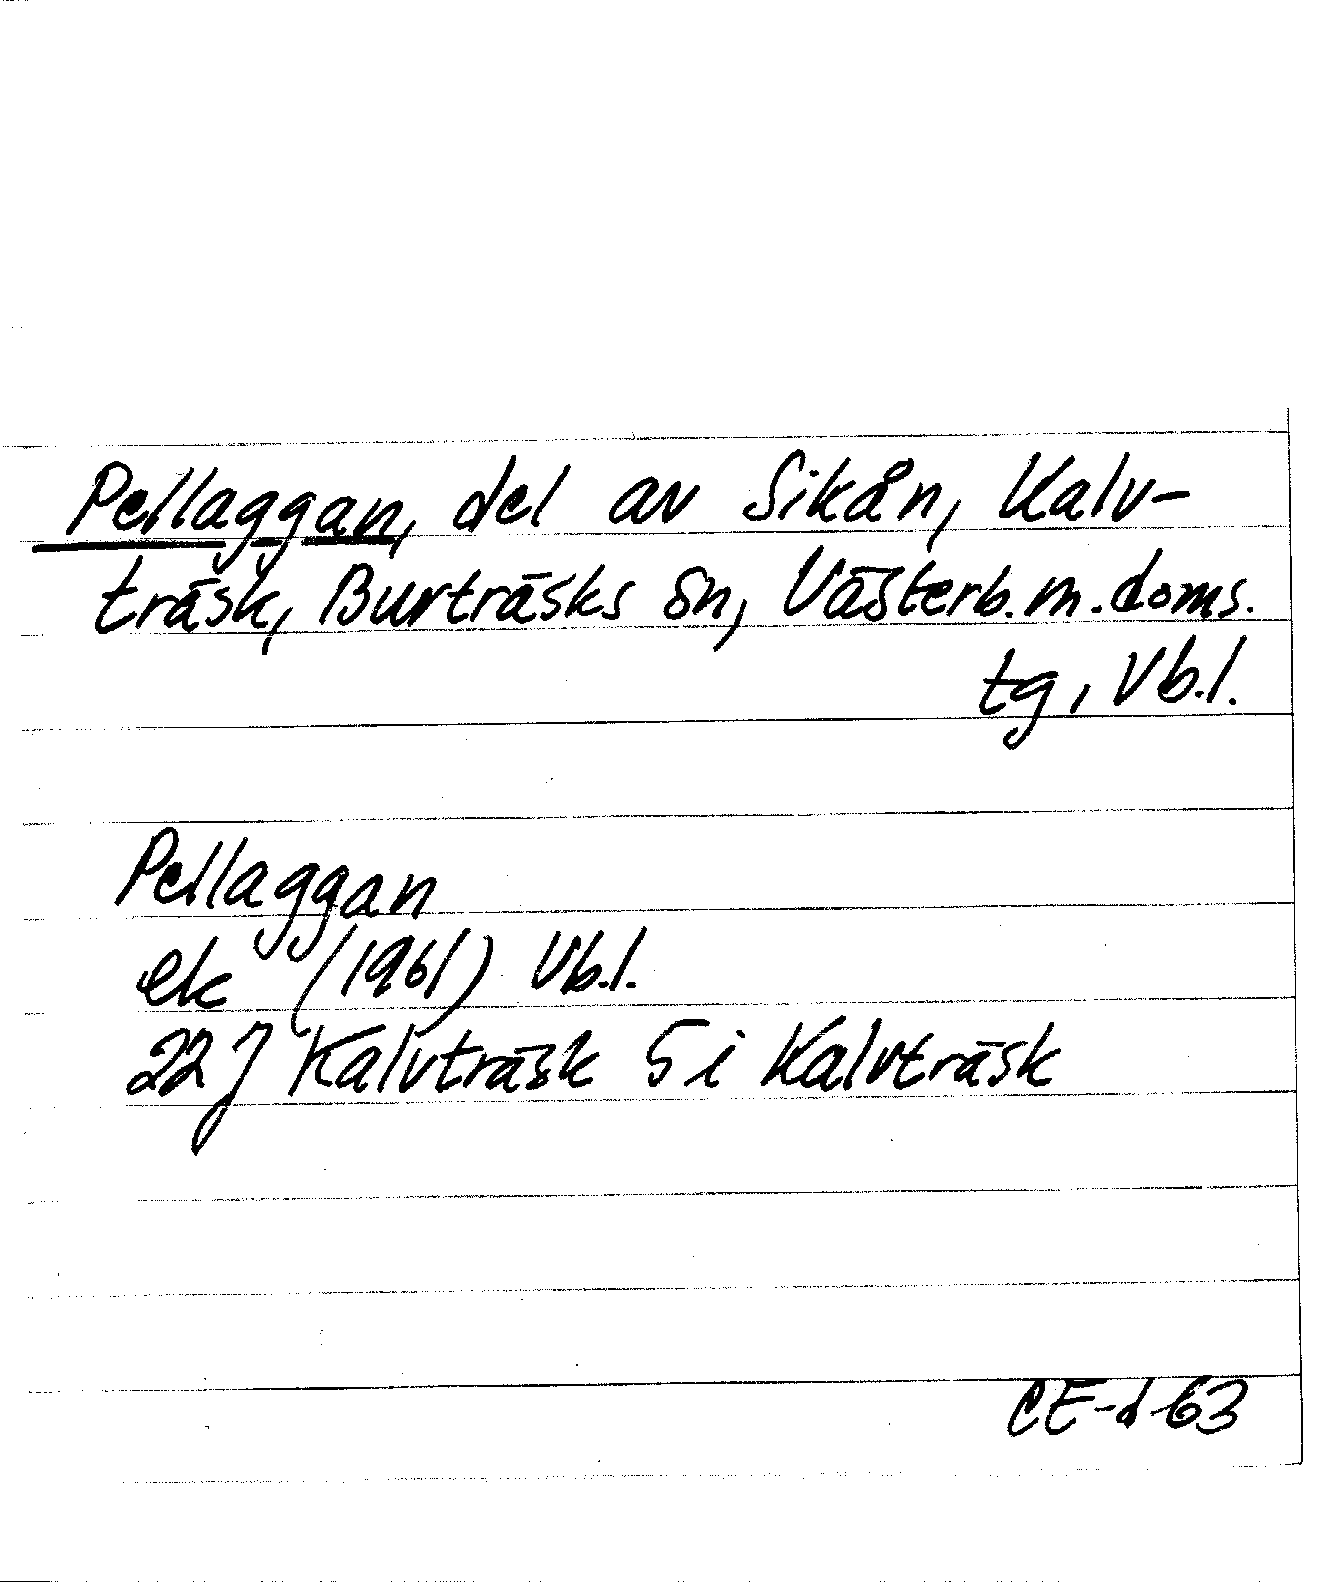 Pellaggan, del av Sikån, Kalv-
träsk, Burträsks sn, Västerb.m.doms.
tg, Vb.l.
Pellaggan
ek (1961) Vb.l.
22 J Kalvträsk 5 i Kalvträsk
CE-d-63